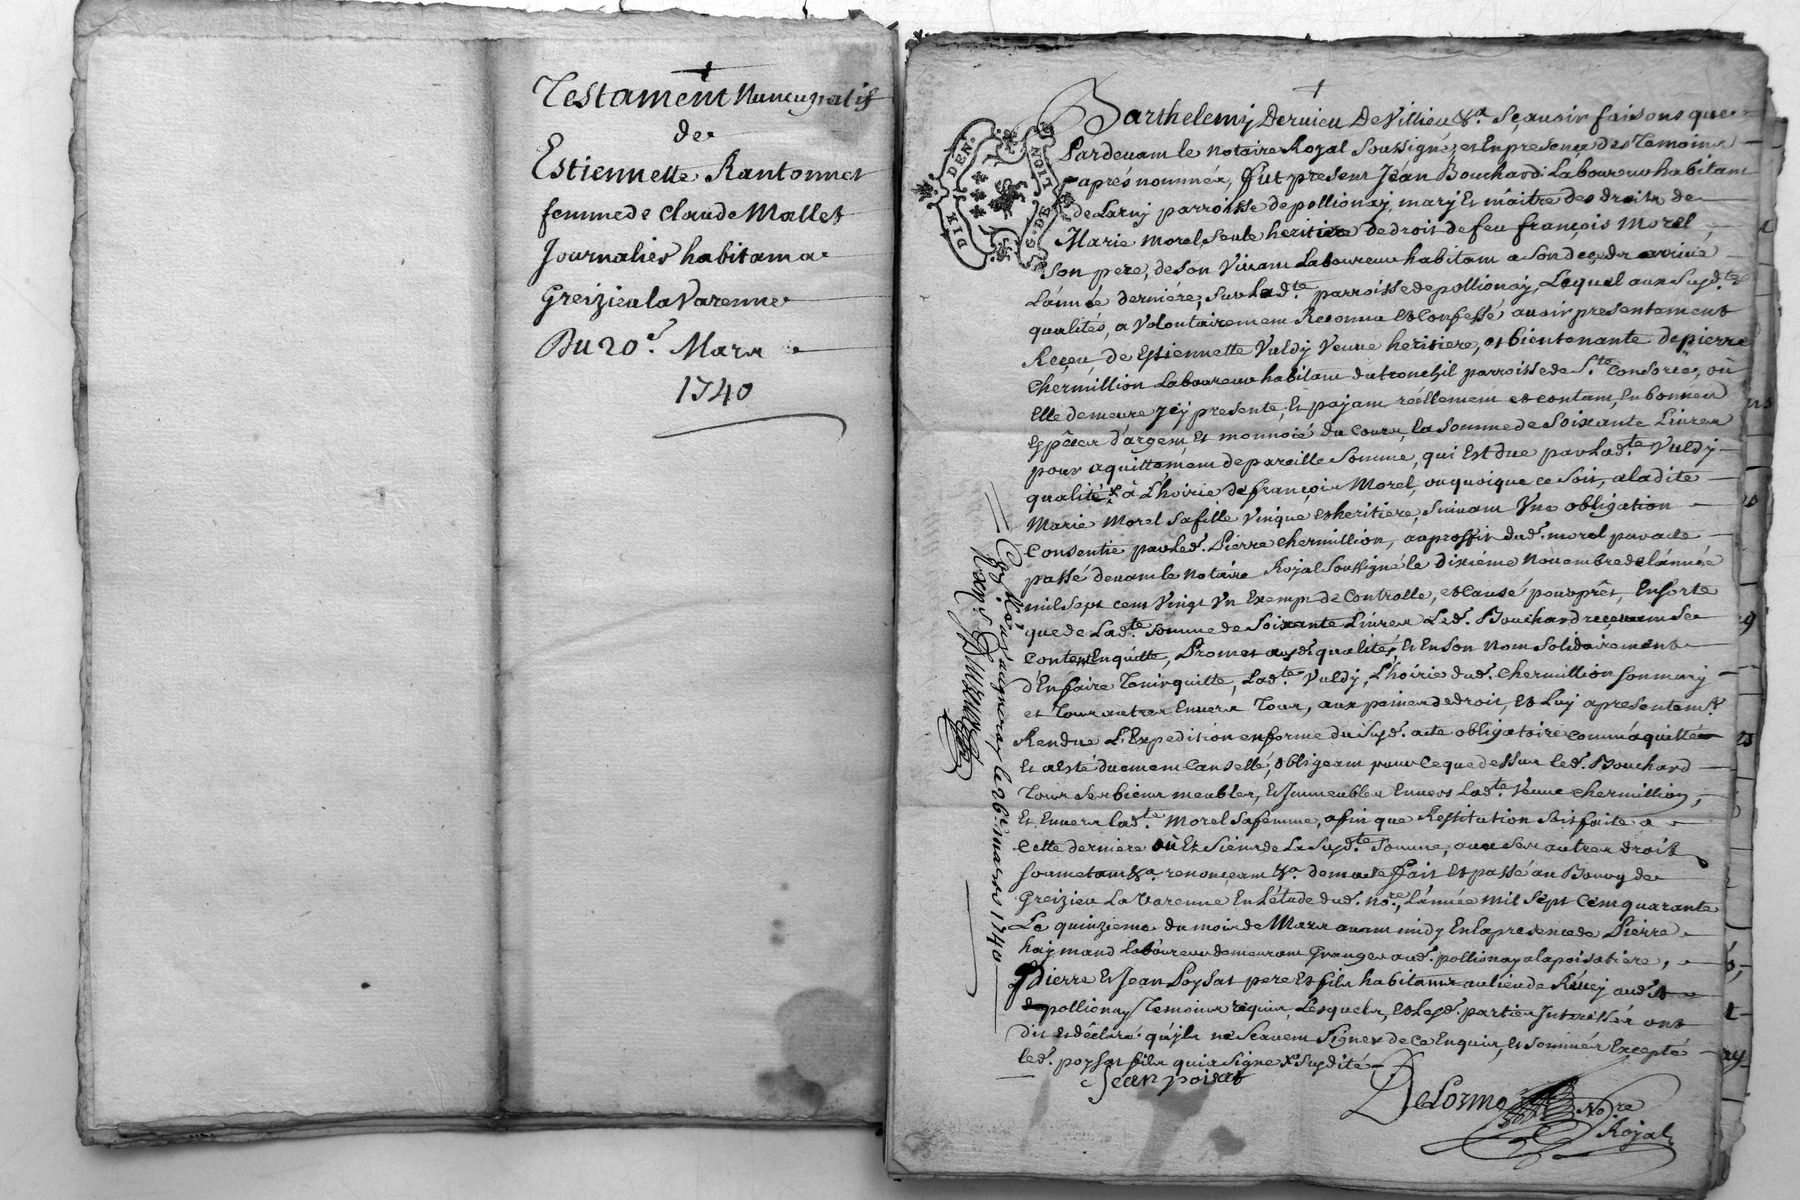 Testament Nuncupatif
de
Estiennette Rantonnet
femme de Claude Mallet
Journalier habitant a
Greizieu la Varenne
Du 20e. Mars
1740
Barthelemy Deruieu De Villieu &a. Sçauoir faisons que
Pardeuant le Notaire Royal Soussigné, et En presence des Temoins
apres nommés, fut present Jean Bouchard Laboureur habitant
de Larny parroisse de pollionay, mary Et maitre des droits de
Marie Morel, Seule heritiere de droit de feu françois Morel
Son pere, de Son Viuant Laboureur habitant a Son deçeds arriué
L'année derniére, Sur Lad.te parroisse de pollionay, Lequel aux Susd.tes
qualités, a Volontairement Reconnu et Confessé auoir presentement
Reçeu de Estiennette Vuldy Veuue heritiere, et bientenante de pierre
Chermillion Laboureur habitant du tronchil parroisse de S.te Consorce, où
Elle demeure Jcy presente, Et payant réellement et contant, En bonnes
Espéces d'argent Et monnoié du Cours, la Somme de Soixante Liures
pour aquittement de pareille Somme, qui Est due par Lad.te Vuldy
qualité à L'hoirie de françois Morel, ou quoique ce Soit, a ladite
Marie Morel Sa fille Vnique et heritiere, Suiuant Vne obligation
Consentie par Led. Pierre Chermillion, au proffit dud. morel par acte
passé deuant le Notaire Royal Soussigné le dixieme Nouembre de l'année
mil Sept cent Vingt Vn Exempt de Controlle, et Causé pour prêt, En Sorte
que de Lad.te Somme de Soixante Liures Led. Bouchard
Content En quitte, Promet qualités, Et En Son Nom Solidairement
d'En faire Tenir quitte, Lad.te Vuldy, L'hoirie dud. Chermillion Son mary
et Tous autres Enuers Tous, aux peines de droit, Et Luy a presentem.t
Rendue L'Expedition en forme du Susd. acte obligatoire comme aquittée
Et a Esté duement Cansellé, obligeant pour Ce que dessus led. Bouchard
Tous Ses biens meubles, Et Jmmeubles Enuers Lad.te Veuue Chermillion,
Et Enuers lad.te Morel Sa femme, afin que Restitution Soit faite a
Cette derniere où Es Siens de La Susd.te Somme, auec Ses autres droits
Soumetant &a. renonçant &a. dont acte fait Et passé au Bourg de
Greizieu La Varenne En L'étude dud. no.re, L'année mil Sept Cent quarante
Le quinzieme du mois de Mars auant midy En la presence de Pierre
haymand Laboureur demeurant Granger aud. pollionay a la poisatiere,
Pierre Et Jean Poysat pere Et fils habitants au lieu de aud.
pollionay Temoins requis, Lesquels, Et Lesd. parties Jnteressés ont
dit Et déclaré qu'ils ne Scauent Signer de Ce Enquis, Et Sommés Excepté
led. poysat fils qui a Signé Susdité
Jean poisat
Delorme No.re
Royal
Con.lé à Vaugneray le 26e. mars 1740
DEN.
NOIT
G. DE
DIX